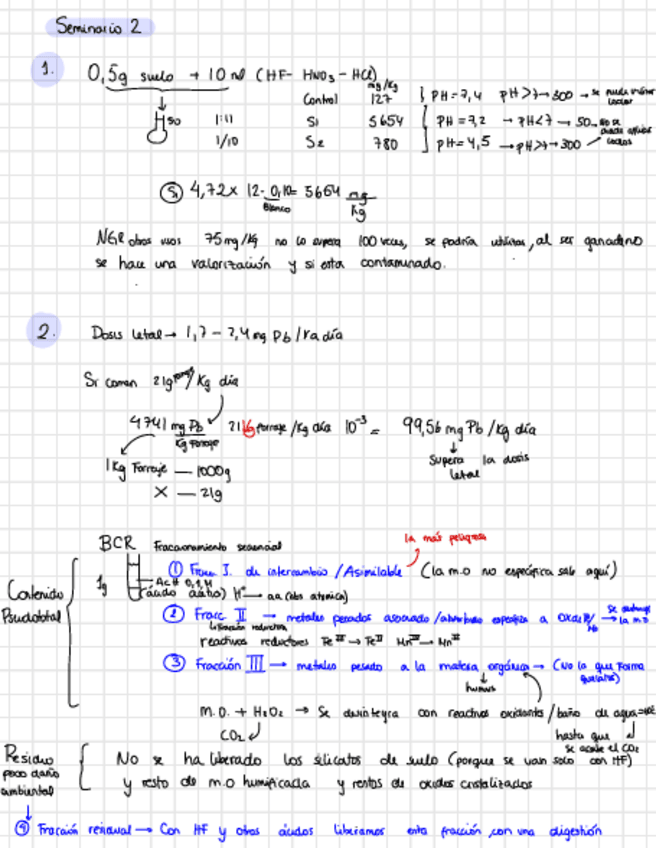 Seminario 2
1. 0,5g suelo + 10 ml (HF - HNO3 - HCl)
mg/kg
Control 127 pH=7,4 pH>7→300 → se puede
50 1:11 S1 5654 pH=7,2 → pH<7 → 50
1/10 S2 780 pH=4,5 → pH>7→300
S1 4,72 x 12 - 0,10 = 5664 mg/kg
Blanco
NGR otros usos 75 mg/kg no lo supera 100 veces, se podría utilizar, al ser ganadero
se hace una valorización y si esta contaminado.
2. Dosis letal → 1,7 - 2,4 mg Pb / día
Si comen 21g /kg día
4741 mg Pb / kg Forraje 21 kg forraje /kg día 10⁻³ = 99,56 mg Pb /kg día
1kg Forraje — 1000g
X — 21g
Supera la dosis
letal
BCR Fraccionamiento secuencial
la más peligrosa
1g
① Fracc I. de intercambio /Asimilable (la m.o no específica sale aquí)
AcH 0,1 M
(ácido acético) H⁺ → aa (abs atómica)
② Fracc II → metales pesados asociado /
se destruye
la m.o
reactivos reductores Fe III → Fe II Mn III → Mn II
③ Fracción III → metales pesado a la materia orgánica → (No la que forma
quelatos)
humus
Contenido
Psudototal
M.O. + H2O2 → Se desintegra con reactivos oxidantes /baño de agua
CO2
hasta que
se acabe el CO2
Residuo
poco daño
ambiental
No se ha liberado los silicatos de suelo (porque se van solo con HF)
y resto de m.o humificada y restos de oxidos cristalizados
④ Fracción residual → Con HF y otros ácidos liberamos esta fracción, con una digestión